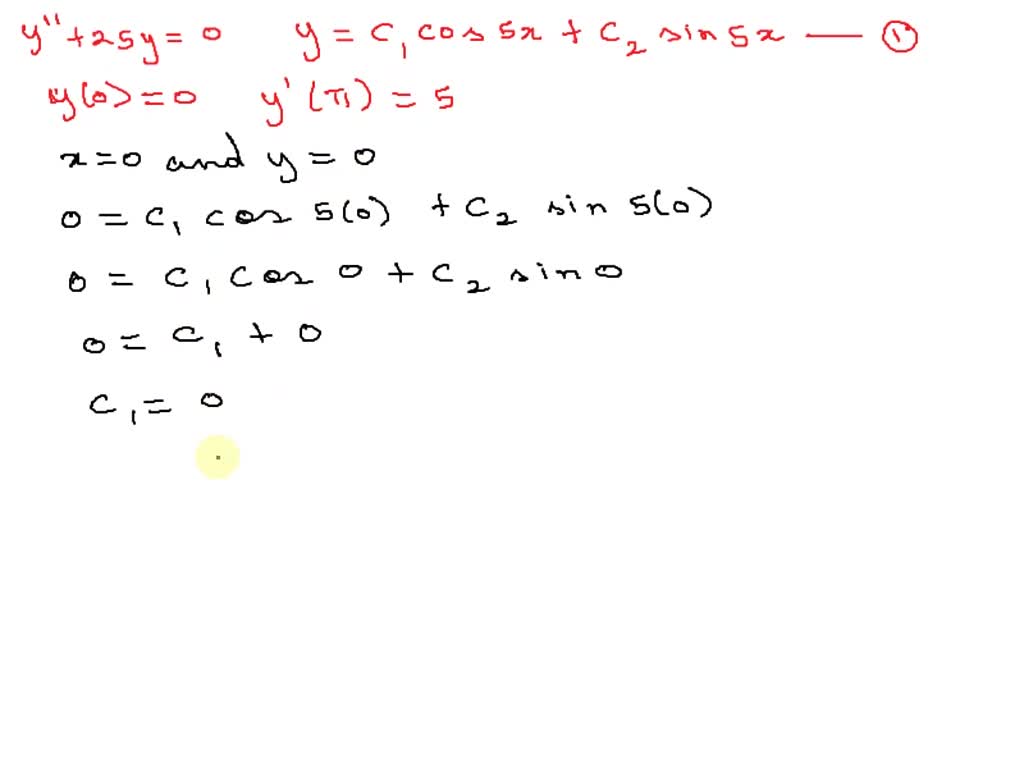 y''+25y=0 y = c₁ cos 5x + c₂ sin 5x — ①
y(0)=0 y'(π) = 5
x=0 and y = 0
0 = c₁ cos 5(0) + c₂ sin 5(0)
0 = c₁ cos 0 + c₂ sin 0
0 = c₁ + 0
c₁ = 0